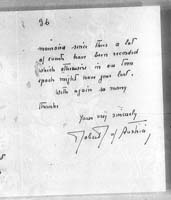 36
memoirs since thus a lot
of events have been recorded
which otherwise in our torn
epoch might have gone lost.
With again so many
thanks
Yours very sincerely
Robert of Austria